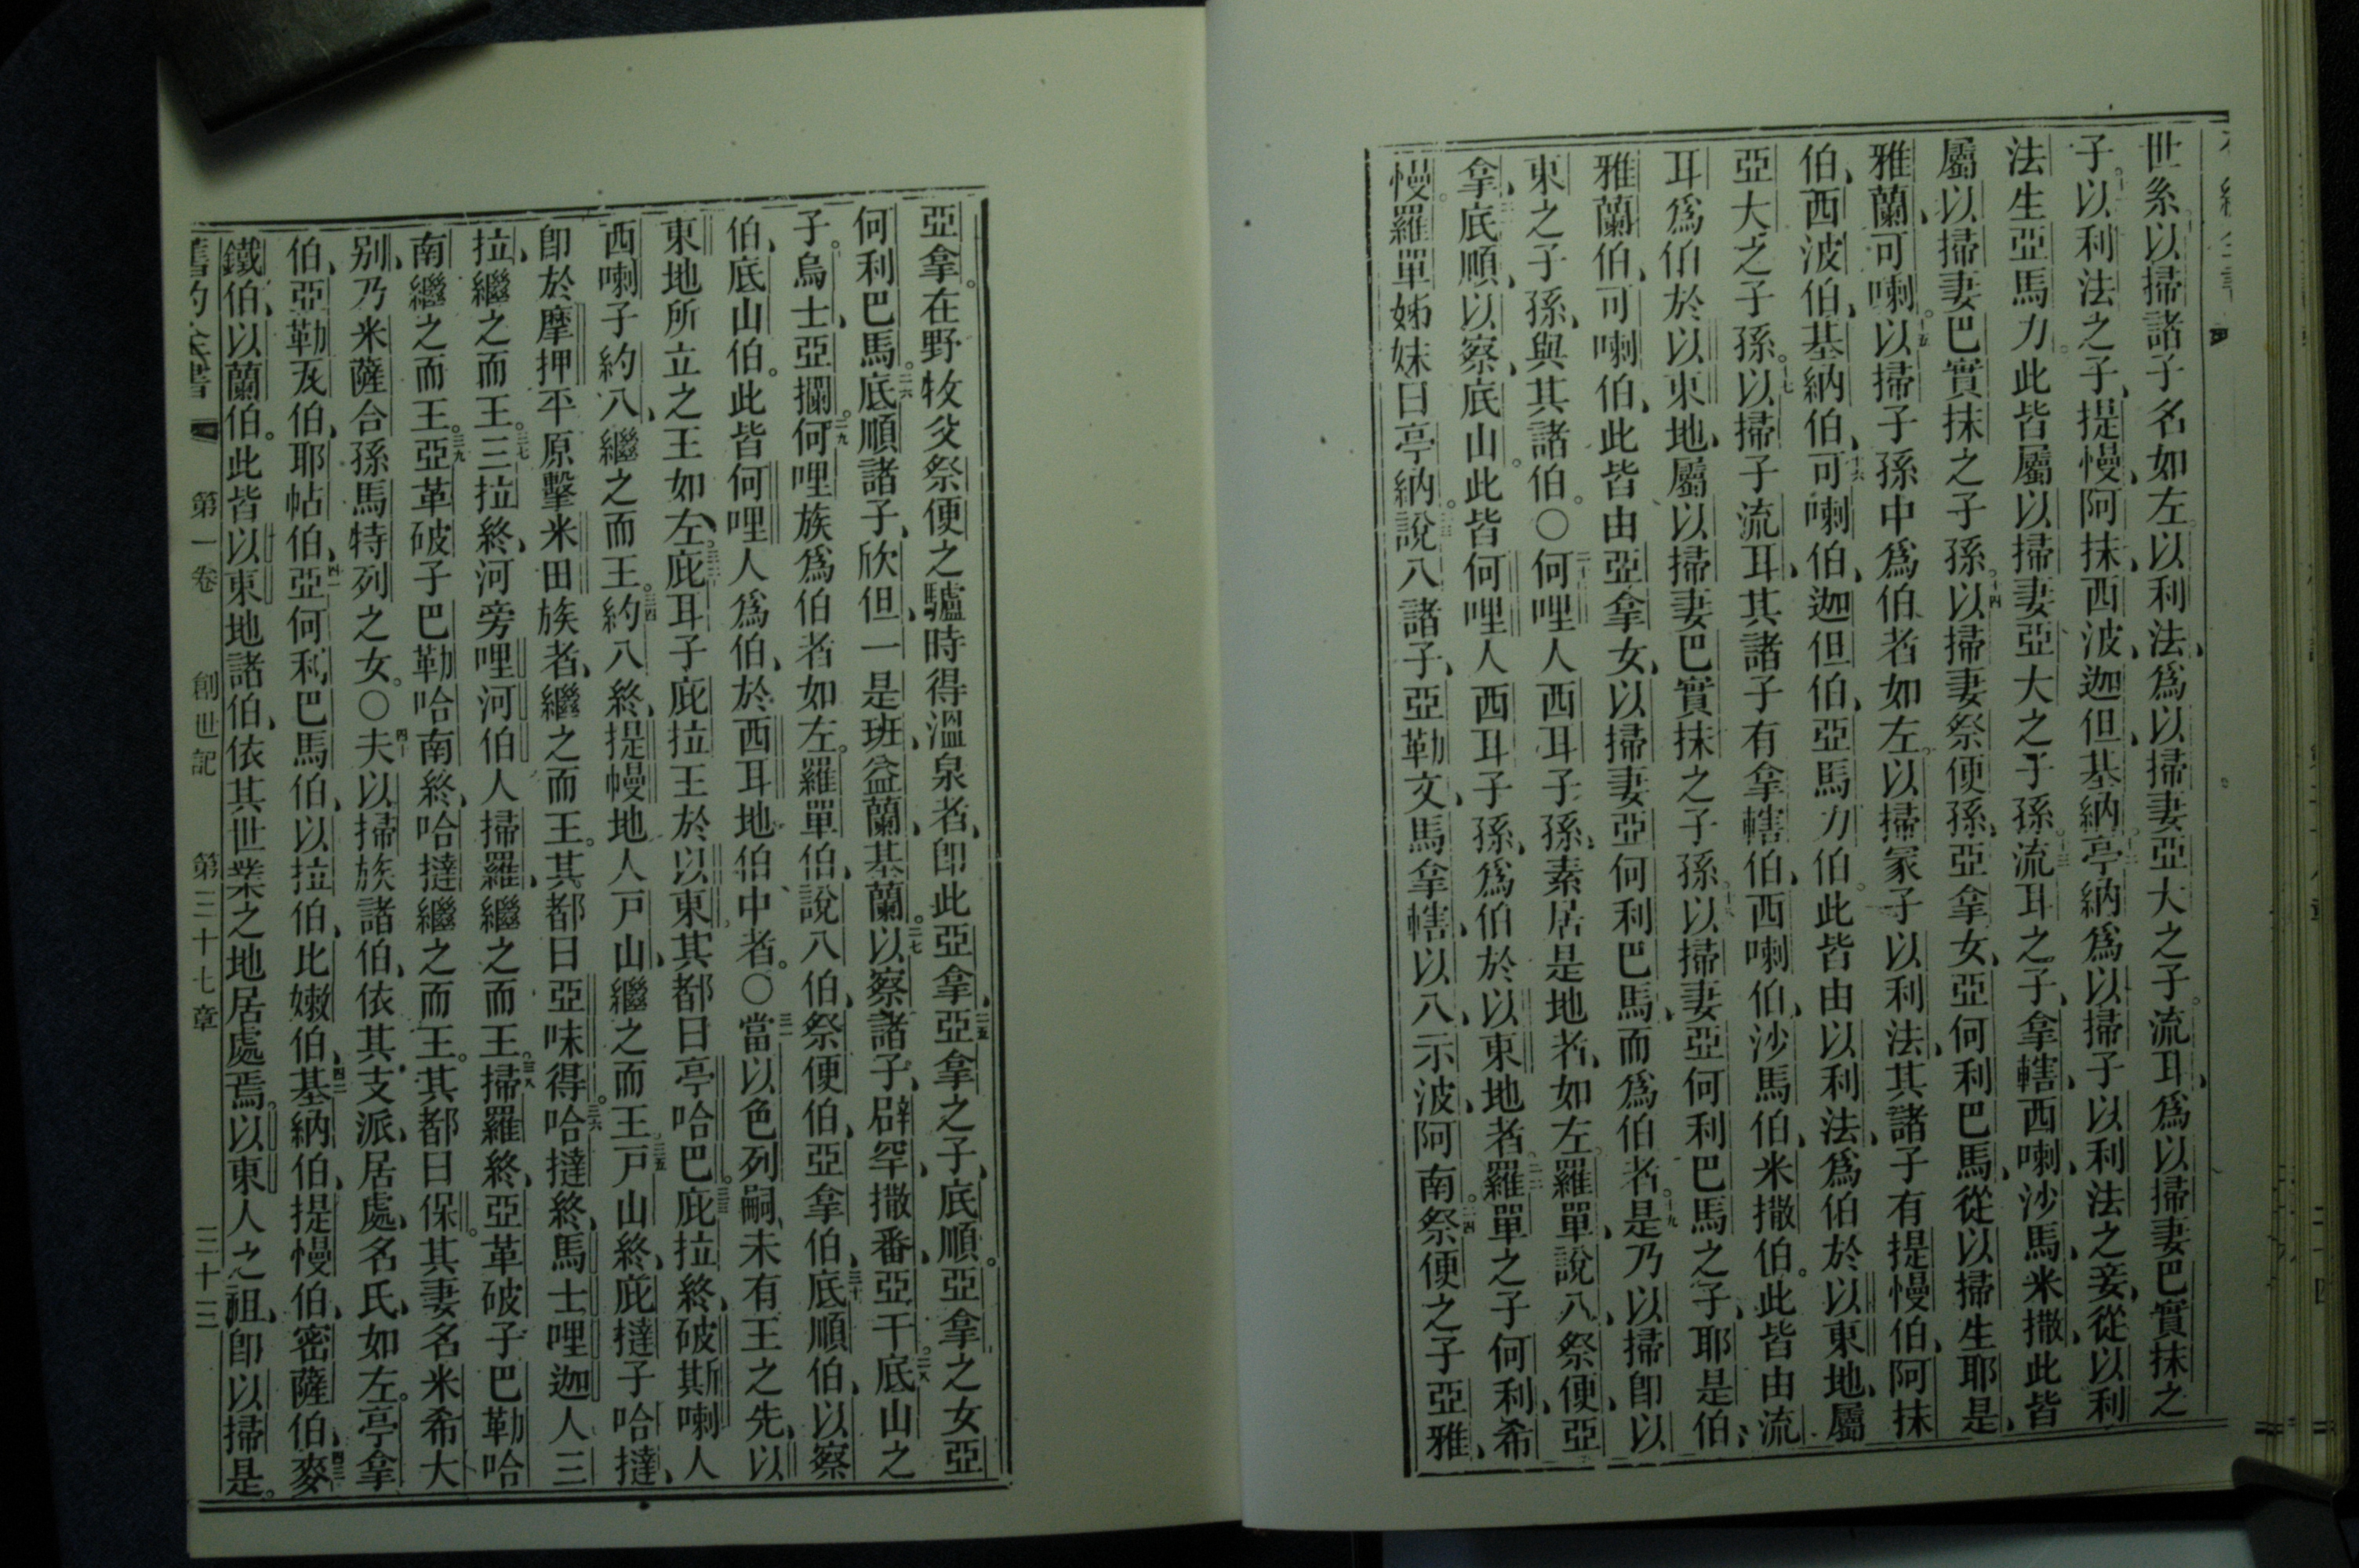 世系以掃諸子名如左。以利法、爲以掃妻亞大之子。流耳、爲以掃妻巴實抹之
子。十一以利法之子、提慢、阿抹、西波、迦但、基納。十二亭納爲以掃子以利法之妾、從以利
法生亞馬力。此皆屬以掃妻亞大之子孫。十三流耳之子、拿轄、西喇、沙馬、米撒、此皆
屬以掃妻巴實抹之子孫。十四以掃妻祭便孫、亞拿女、亞何利巴馬、從以掃生耶是、
雅蘭、可喇。十五以掃子孫中爲伯者如左。以掃冢子以利法、其諸子有提慢伯、阿抹
伯、西波伯、基納伯、十六可喇伯、迦但伯、亞馬力伯。此皆由以利法、爲伯於以東地、屬
亞大之子孫。十七以掃子流耳、其諸子有拿轄伯、西喇伯、沙馬伯、米撒伯。此皆由流
耳爲伯於以東地、屬以掃妻巴實抹之子孫。十八以掃妻亞何利巴馬之子、耶是伯、
雅蘭伯、可喇伯、此皆由亞拿女、以掃妻亞何利巴馬、而爲伯者。十九是乃以掃卽以
東之子孫、與其諸伯。○二十何哩人西耳子孫、素居是地者、如左。羅單、說八、祭便、亞
拿、二一底順、以察、底山。此皆何哩人西耳子孫、爲伯於以東地者。二二羅單之子何利、希
慢。羅單姊妹曰亭納。二三說八諸子、亞勒文、馬拿轄、以八、示波、阿南。二四祭便之子亞雅、
亞拿。在野牧父祭便之驢時得溫泉者、卽此亞拿。二五亞拿之子、底順。亞拿之女亞
何利巴馬。二六底順諸子、欣但、一是班、益蘭、基蘭。二七以察諸子、辟罕、撒番、亞干。二八底山之
子。烏士、亞攔。二九何哩族爲伯者如左。羅單伯、說八伯、祭便伯、亞拿伯、三十底順伯、以察
伯、底山伯。此皆何哩人爲伯、於西耳地伯中者。○三一當以色列嗣、未有王之先、以
東地所立之王如左。三二庇耳子庇拉王於以東、其都曰亭哈巴。三三庇拉終、破斯喇人
西喇子約八、繼之而王。三四約八終、提幔地人戸山、繼之而王。三五戸山終、庇撻子哈撻、
卽於摩押平原擊米田族者、繼之而王。其都曰亞味得。三六哈撻終、馬士哩迦人三
拉、繼之而王。三七三拉終、河旁哩河伯人掃羅、繼之而王。三八掃羅終、亞革破子巴勒哈
南繼之而王。三九亞革破子巴勒哈南終、哈撻繼之而王。其都曰保。其妻名米希大
别、乃米薩合孫馬特列之女。○四十夫以掃族諸伯、依其支派、居處、名氏、如左。亭拿
伯、亞勒瓦伯、耶帖伯、四一亞何利巴馬伯、以拉伯、比嫩伯、四二基納伯、提慢伯、密薩伯、四三麥
鐵伯、以蘭伯。此皆以東地諸伯、依其世業之地居處焉。以東人之祖、卽以掃是。
舊約全書 第一卷 創世記 第三十七章 三十三